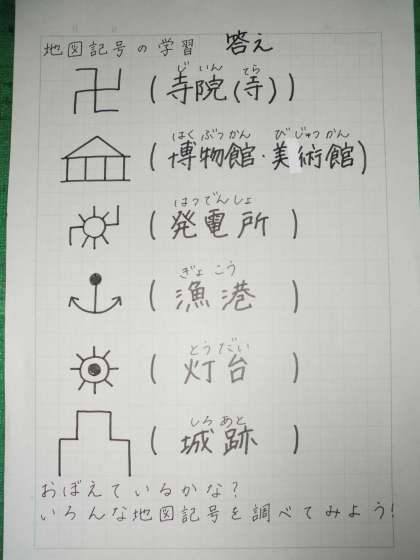 地図記号の学習 答え
じいん てら
(寺院(寺))
はくぶつかん びじゅつかん
(博物館・美術館)
はつでんしょ
(発電所)
ぎょこう
(漁港)
とうだい
(灯台)
しろあと
(城跡)
おぼえているかな?
いろんな地図記号を調べてみよう!